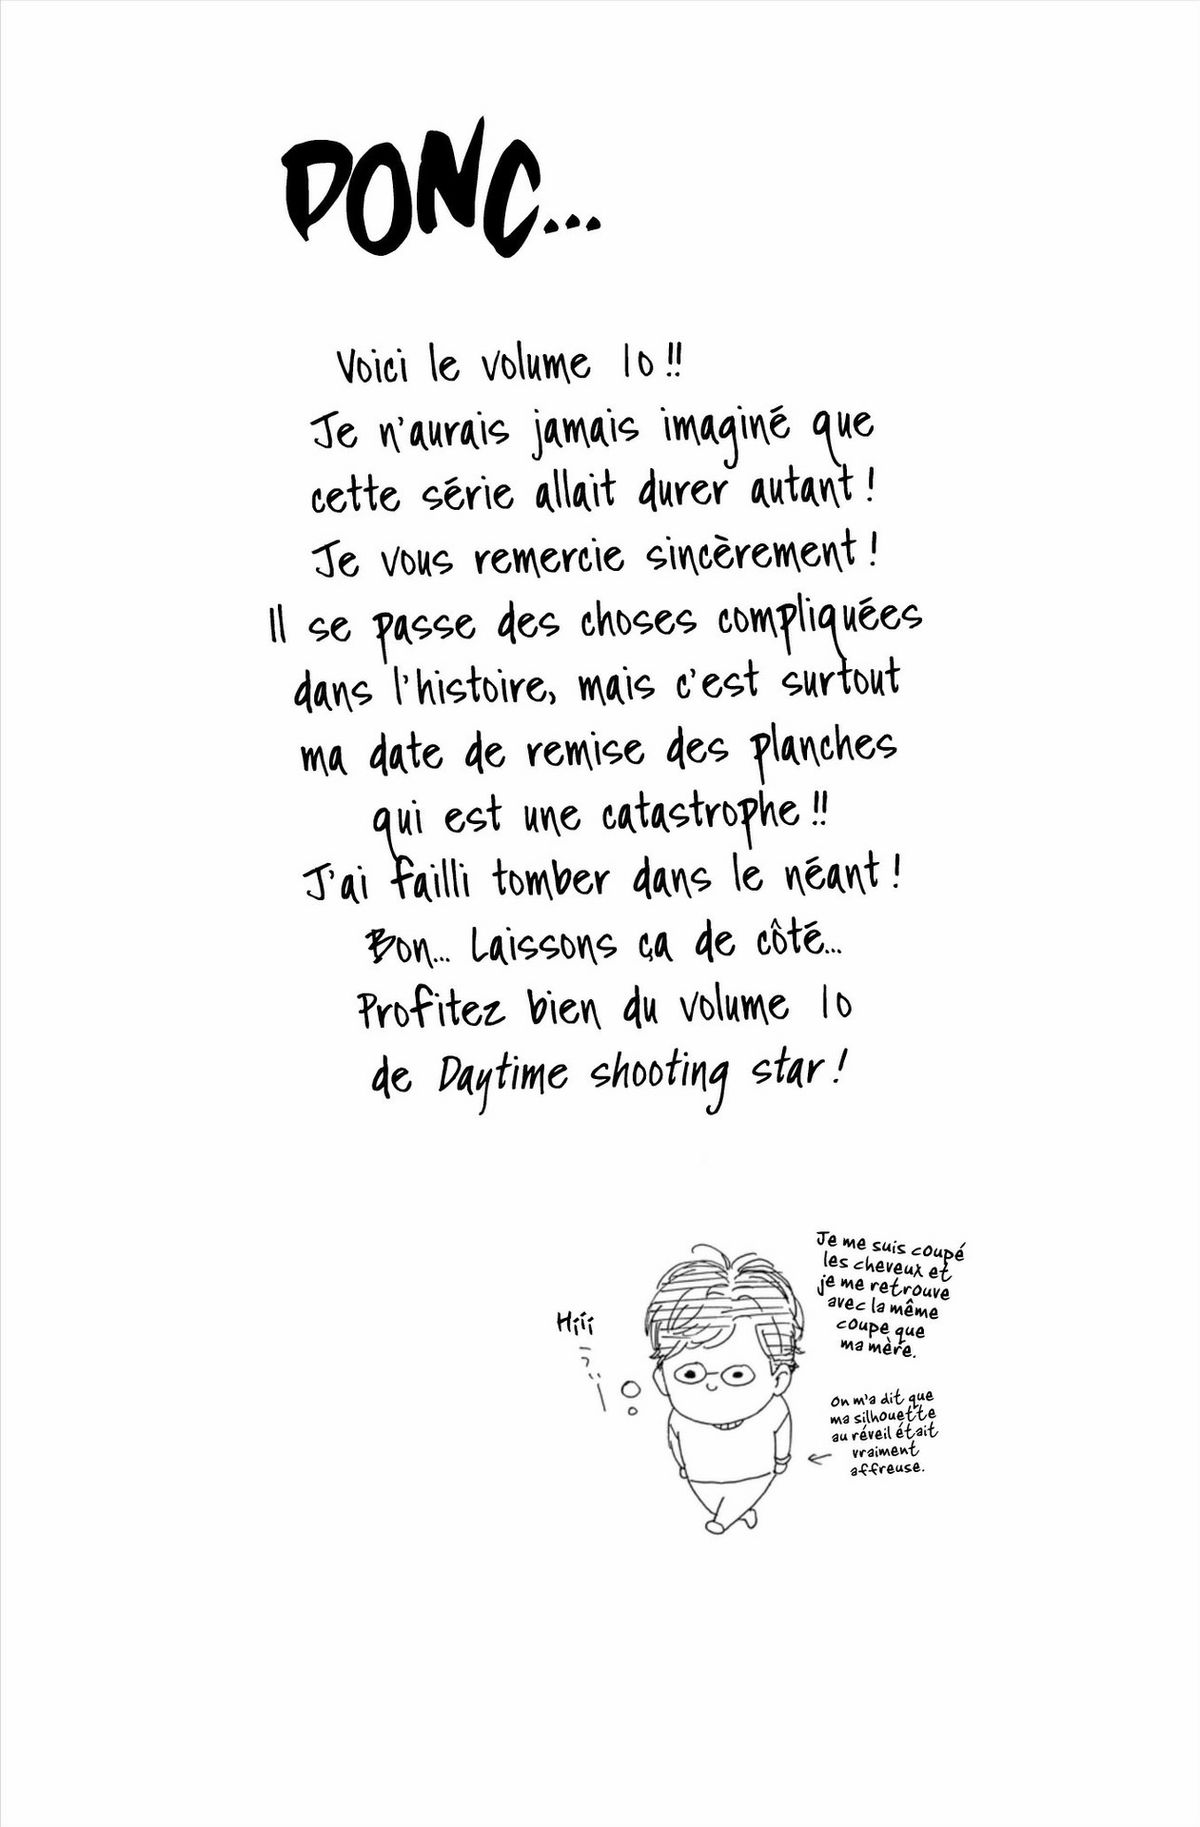 DONC...
Voici le volume 10 !!
Je n'aurais jamais imaginé que
cette série allait durer autant !
Je vous remercie sincèrement !
Il se passe des choses compliquées
dans l'histoire, mais c'est surtout
ma date de remise des planches
qui est une catastrophe !!
J'ai failli tomber dans le néant !
Bon... Laissons ça de côté...
Profitez bien du volume 10
de Daytime shooting star !
Je me suis coupé
les cheveux et
je me retrouve
avec la même
coupe que
ma mère.
Hííí
On m'a dit que
ma silhouette
au réveil était
vraiment
affreuse.